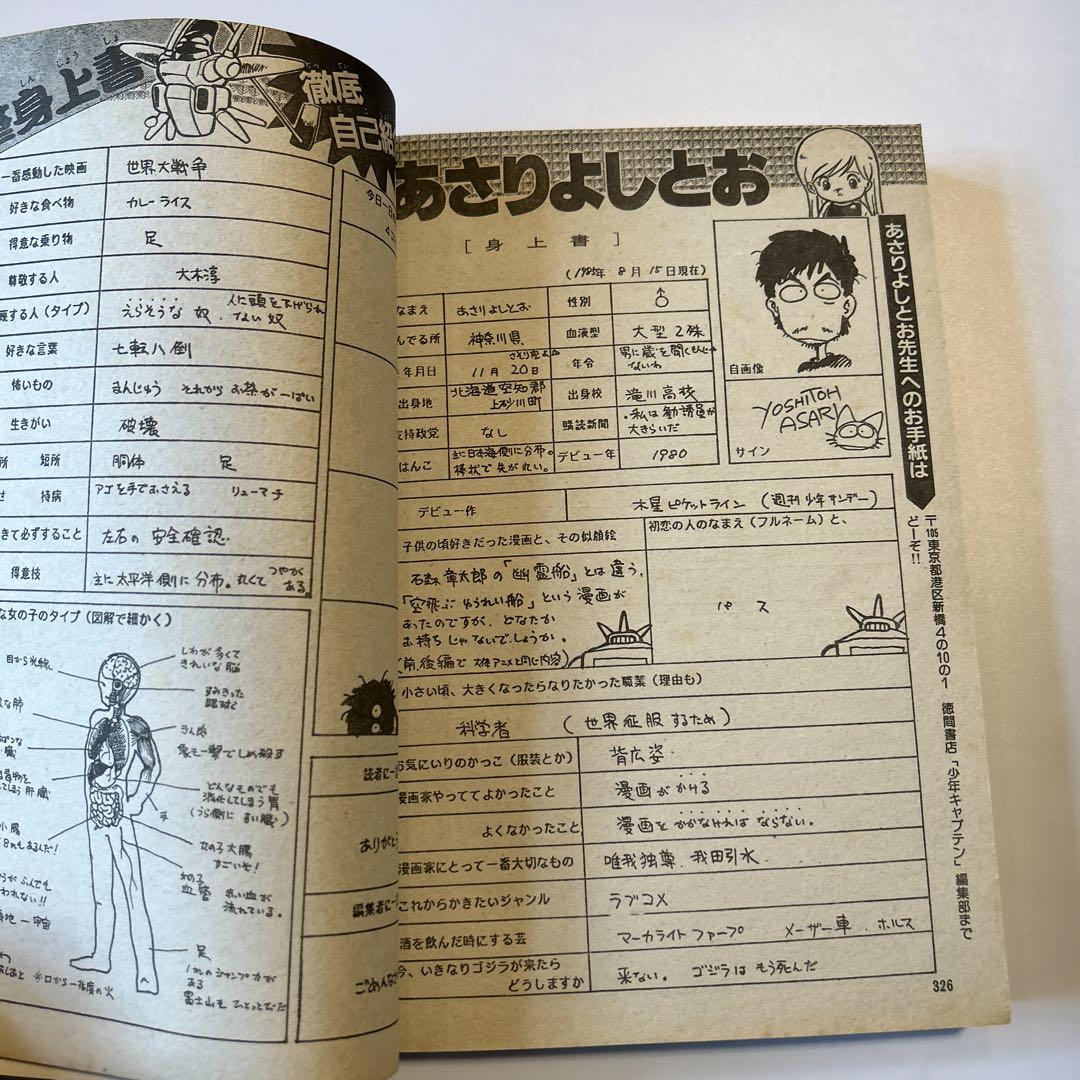 身上書
しんじょうしょ
徹底
自己紹
一番感動した映画 世界大戦争
好きな食べ物 カレーライス
得意な乗り物 足
尊敬する人 大木淳
する人(タイプ) えらそうな奴.人に頭を下げられない奴
好きな言葉 七転八倒
怖いもの まんじゅう それから お茶がいっぱい
生きがい 破壊
所 短所 胴体 足
持病 アゴを手でおさえる リューマチ
きて必ずすること 左右の安全確認.
得意技 主に太平洋側に分布。丸くてつやがある。
な女の子のタイプ(図解で細かく)
目から光線
しわが多くて
きれいな脳
すみきった
きん肉
象も一撃でしめ殺す
どんなものでも
消化してしまう胃
(うら側にすい臓)
手
小腸
8mもあるんだ!
女の子大腸
すごいぞ!
女の子
血管 赤い血が
流れている。
われない!!
足
1kmのジャンプ力が
ある
富士山もひとっとびだ
※口から一兆度の火
今日一日
読者に一
ありがと
編集者に一
ごめんな
あさりよしとお
[身上書]
(1985年 8月 15日現在)
なまえ あさりよしとお 性別 ♂
んでる所 神奈川県 血液型 大型2種
年月日 さそり座 11月20日 年令 男に歳を聞くもんじゃないわ
出身地 北海道空知郡上砂川町 出身校 滝川高校
支持政党 なし 購読新聞 .私は勧誘員が大きらいだ
はんこ 主に日本海側に分布。棒状で先が丸い。 デビュー年 1980
自画像
YOSHITOH
ASARI
サイン
デビュー作 木星ピケットライン(週刊少年サンデー)
子供の頃好きだった漫画と、その似顔絵
石森章太郎の「幽霊船」とは違う,
「空飛ぶゆうれい船」という漫画が
あったのですが、どなたか
お持ちじゃないでしょうか。
(前,後編で 大体アニメと同じ内容)
初恋の人のなまえ(フルネーム)と、
パス
小さい頃、大きくなったらなりたかった職業(理由も)
科学者 (世界征服するため)
お気にいりのかっこ(服装とか) 背広姿.
漫画家やっててよかったこと 漫画がかける
よくなかったこと 漫画をかかなければならない.
漫画家にとって一番大切なもの 唯我独尊.我田引水.
これからかきたいジャンル ラブコメ
酒を飲んだ時にする芸 マーカライトファープ メーザー車.ホルス
今、いきなりゴジラが来たら
どうしますか 来ない. ゴジラはもう死んだ
326
あさりよしとお先生へのお手紙は
〒105東京都港区新橋4の10の1 徳間書店「少年キャプテン」編集部まで
どーぞ!!